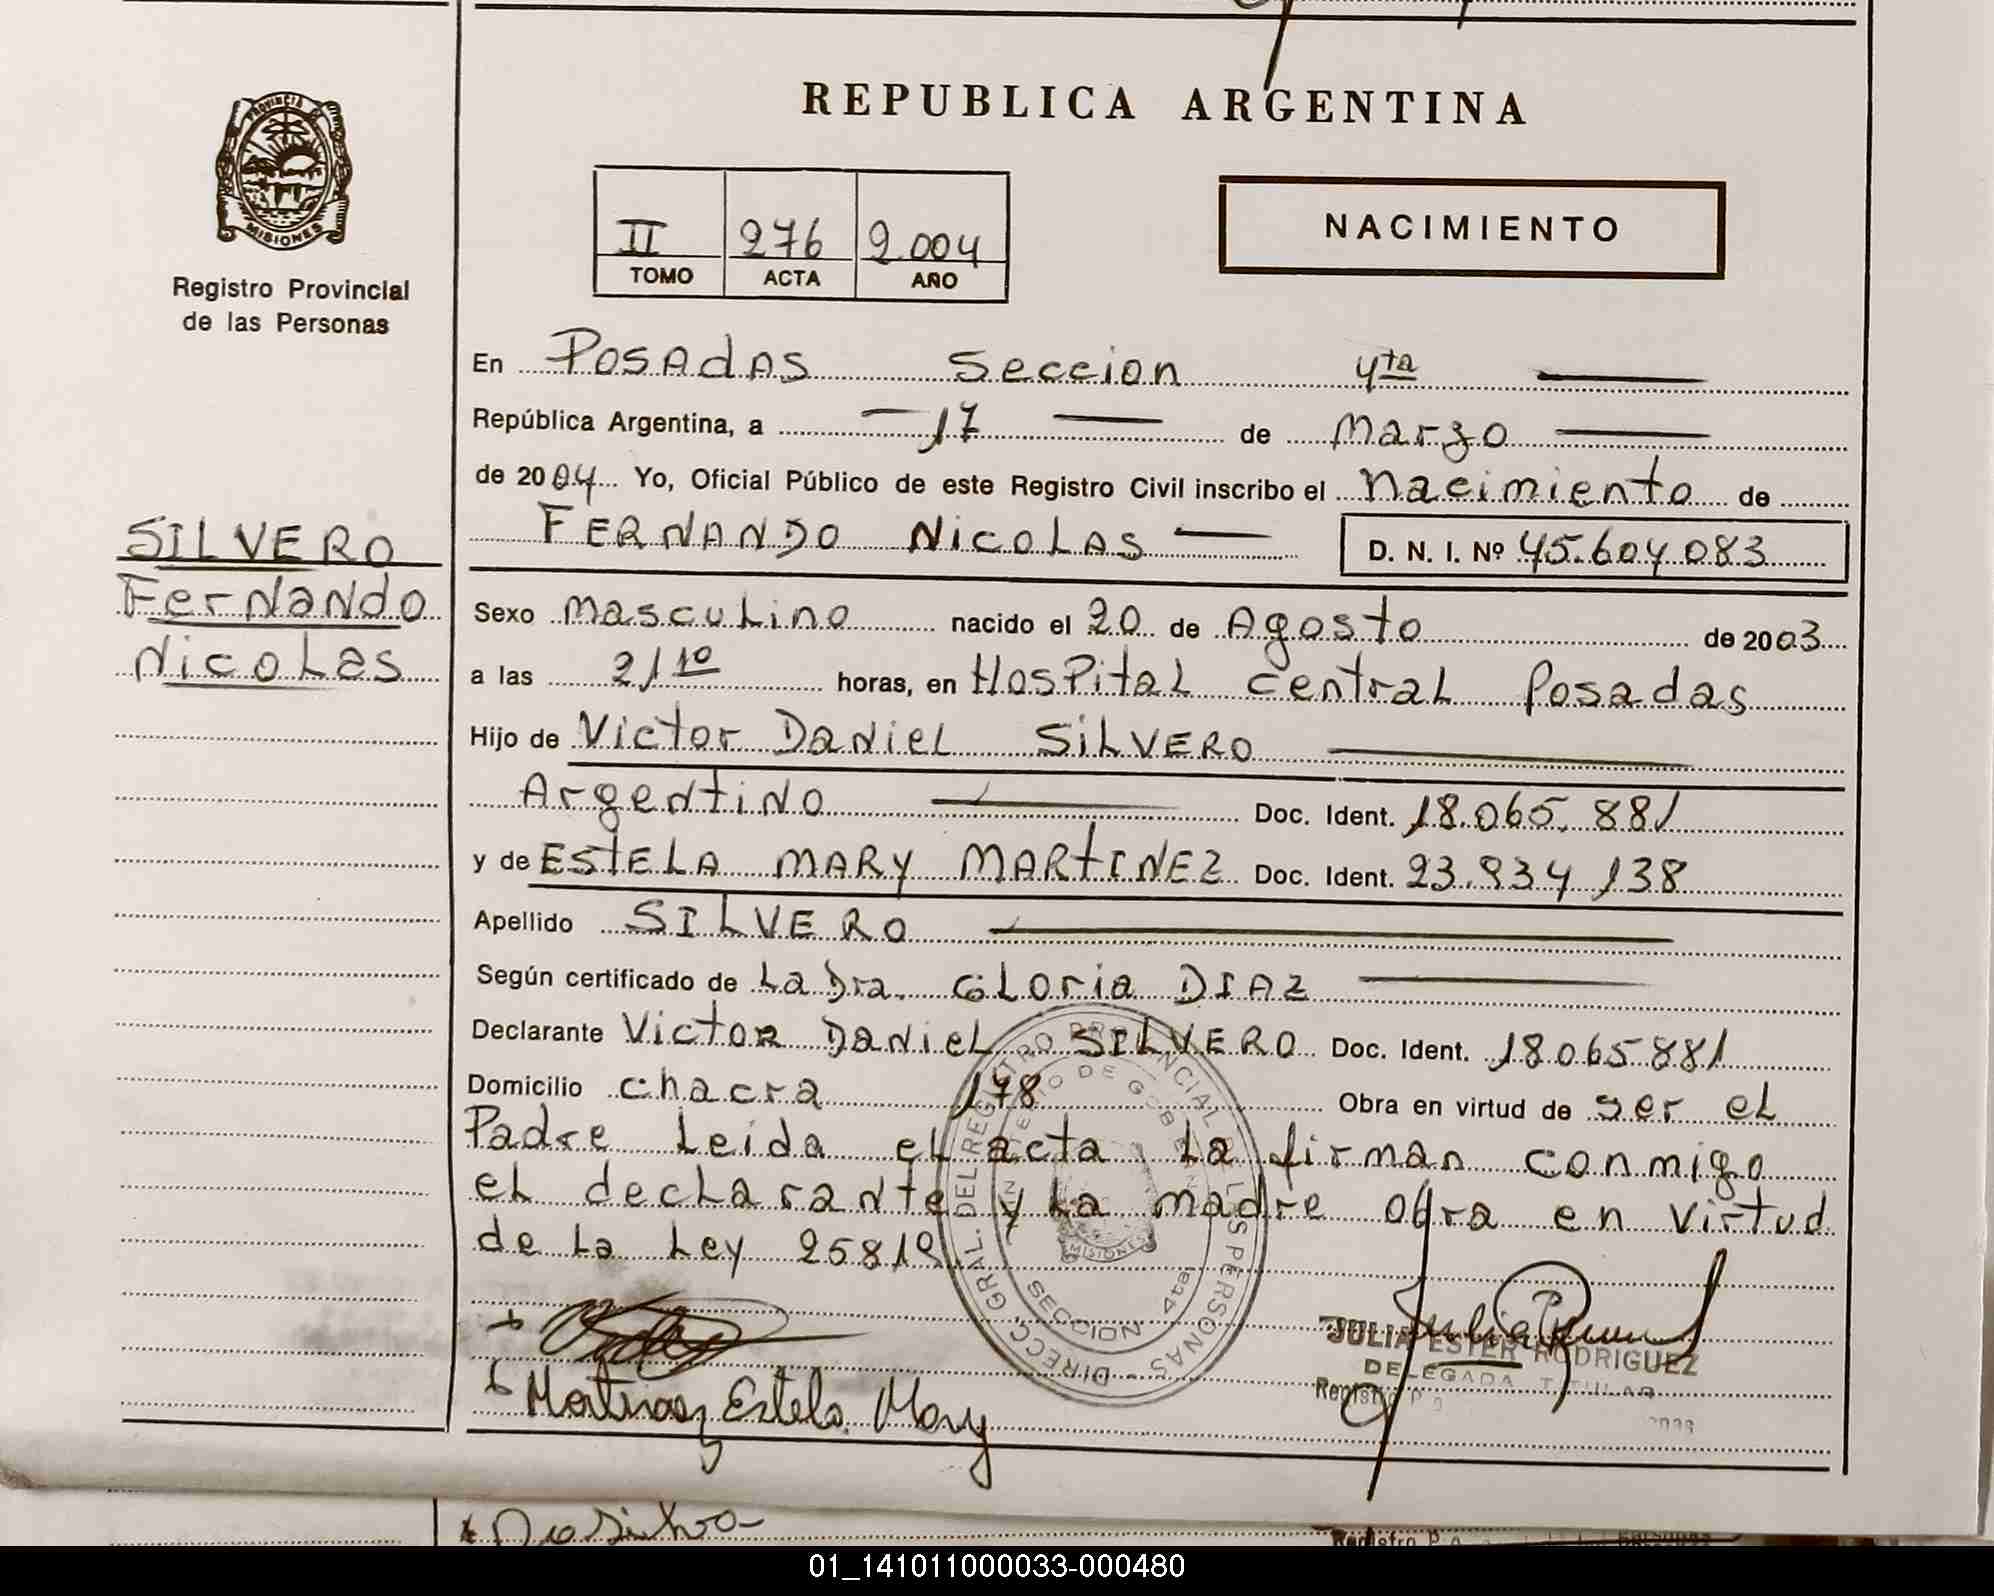 REPUBLICA ARGENTINA
PROVINCIA
MISIONES
Registro Provincial
de las Personas
II 276 2.004
TOMO ACTA AÑO
NACIMIENTO
En Posadas Seccion 4ta
República Argentina, a 17 de Marzo
de 2004 Yo, Oficial Público de este Registro Civil inscribo el Nacimiento de
FERNANDO NicoLAS D. N. I. Nº 45.604.083
SILVERO
Fernando
Nicolas
Sexo Masculino nacido el 20 de Agosto de 2003
a las 21 10 horas, en Hospital central Posadas
Hijo de Victor Daniel SILVERO
Argentino Doc. Ident. 18.065.881
y de ESTELA MARY MARTINEZ Doc. Ident. 23.834 138
Apellido SILVERO
Según certificado de La Dra. Gloria DIAZ
Declarante Victor Daniel SILVERO Doc. Ident. 18 065 881
Domicilio chacra 178 Obra en virtud de ser el
Padre Leida el acta la firman conmigo
el declarante y la madre obra en virtud
de la Ley 25819
DIRECC. GRAL. DEL REGISTRO PROVINCIAL DE LAS PERSONAS
MINISTERIO DE GOBIERNO
MISIONES
SECCION 4ta
JULIA ESTER RODRIGUEZ
DELEGADA TITULAR
Martinez Estela Mary
01_141011000033-000480